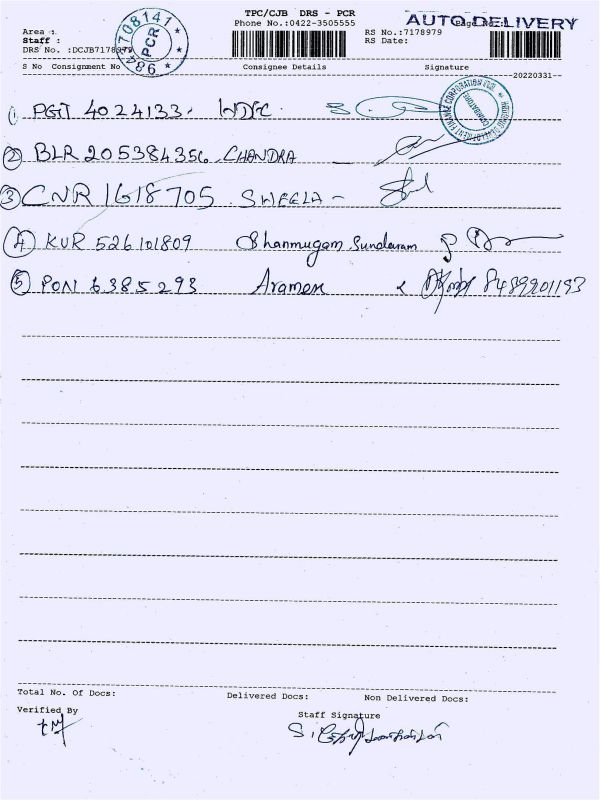 TPC/CJB DRS - PCR
Phone No.:0422-3505555
AUTO DELIVERY
Area :
Staff :
DRS No. :DCJB7178979
RS No.:7178979
RS Date:
Page No.:1
9847708141
PCR
S No Consignment No Consignee Details Signature
20220331
1 PGT 4024133. HDFC.
HOUSING DEVELOPMENT FINANCE CORPORATION
COIMBATORE
2 BLR 205384356 CHANDRA
3 CNR 1618705 SHEELA
4 KUR 526101809 Shanmugam Sundaram
5 PON 6385293 8489201193
Total No. Of Docs: Delivered Docs: Non Delivered Docs:
Verified By
Staff Signature